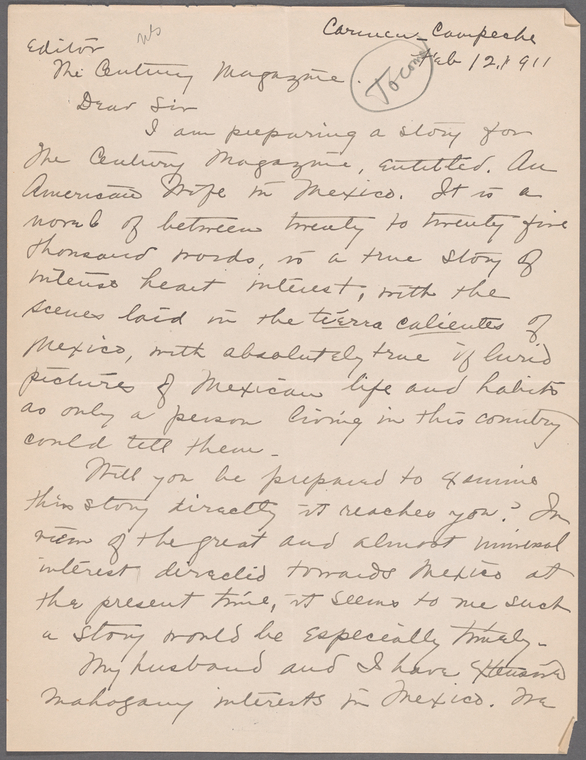 Carmen - Campeche
Feb 12, 1911
Editor
The Century Magazine.
To come
Dear Sir
I am preparing a story for
The Century Magazine, entitled, An
American Wife in Mexico. It is a
novel of between twenty to twenty five
thousand words, is a true story of
intense heart interest, with the
scenes laid in the tierra calientes of
Mexico, with absolutely true if lurid
pictures of Mexican life and habits
as only a person living in this country
could tell them -
Will you be prepared to examine
this story directly it reaches you? In
view of the great and almost universal
interest directed towards Mexico at
the present time, it seems to me such
a story would be especially timely -
My husband and I have extensive
mahogany interests in Mexico. We